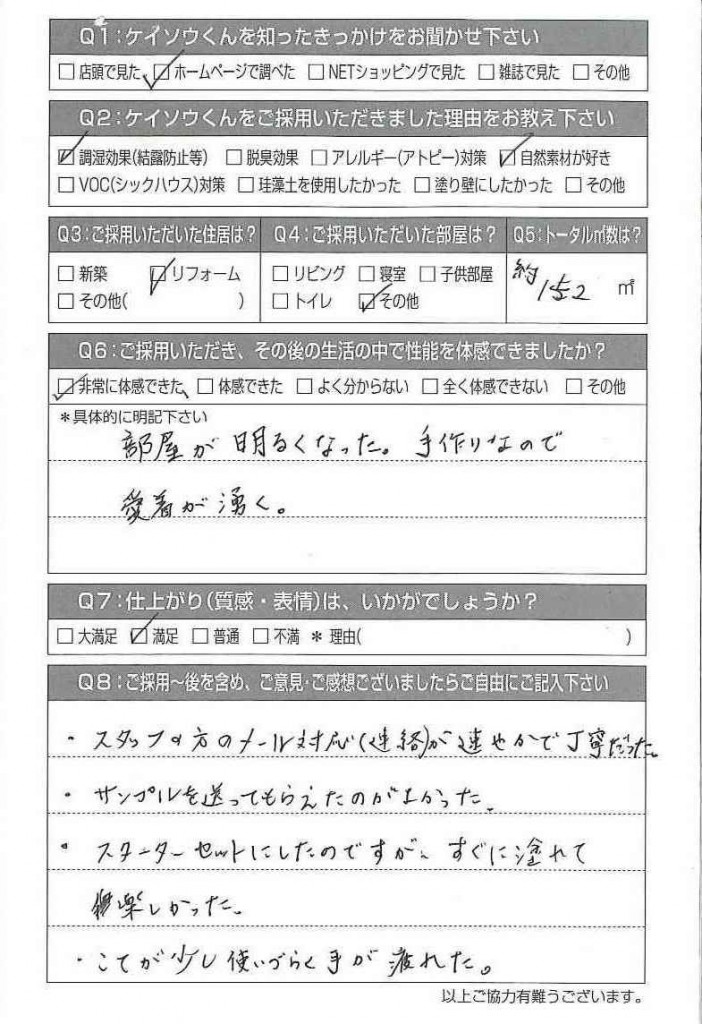 Q1:ケイソウくんを知ったきっかけをお聞かせ下さい
□店頭で見た ☑ホームページで調べた □NETショッピングで見た □雑誌で見た □その他
Q2:ケイソウくんをご採用いただきました理由をお教え下さい
☑調湿効果(結露防止等) □脱臭効果 □アレルギー(アトピー)対策 ☑自然素材が好き
□VOC(シックハウス)対策 □珪藻土を使用したかった □塗り壁にしたかった □その他
Q3:ご採用いただいた住居は?
□新築 ☑リフォーム
□その他( )
Q4:ご採用いただいた部屋は?
□リビング □寝室 □子供部屋
□トイレ ☑その他
Q5:トータル㎡数は?
約152 ㎡
Q6:ご採用いただき、その後の生活の中で性能を体感できましたか?
☑非常に体感できた □体感できた □よく分からない □全く体感できない □その他
*具体的に明記下さい
部屋が明るくなった。手作りなので
愛着が湧く。
Q7:仕上がり(質感・表情)は、いかがでしょうか?
□大満足 ☑満足 □普通 □不満 *理由( )
Q8:ご採用〜後を含め、ご意見・ご感想ございましたらご自由にご記入下さい
・スタッフの方のメール対応(連絡)が速やかで丁寧だった。
・サンプルを送ってもらえたのがよかった。
・スターターセットにしたのですが、すぐに塗れて
楽しかった。
・こてが少し使いづらく手が疲れた。
以上ご協力有難うございます。